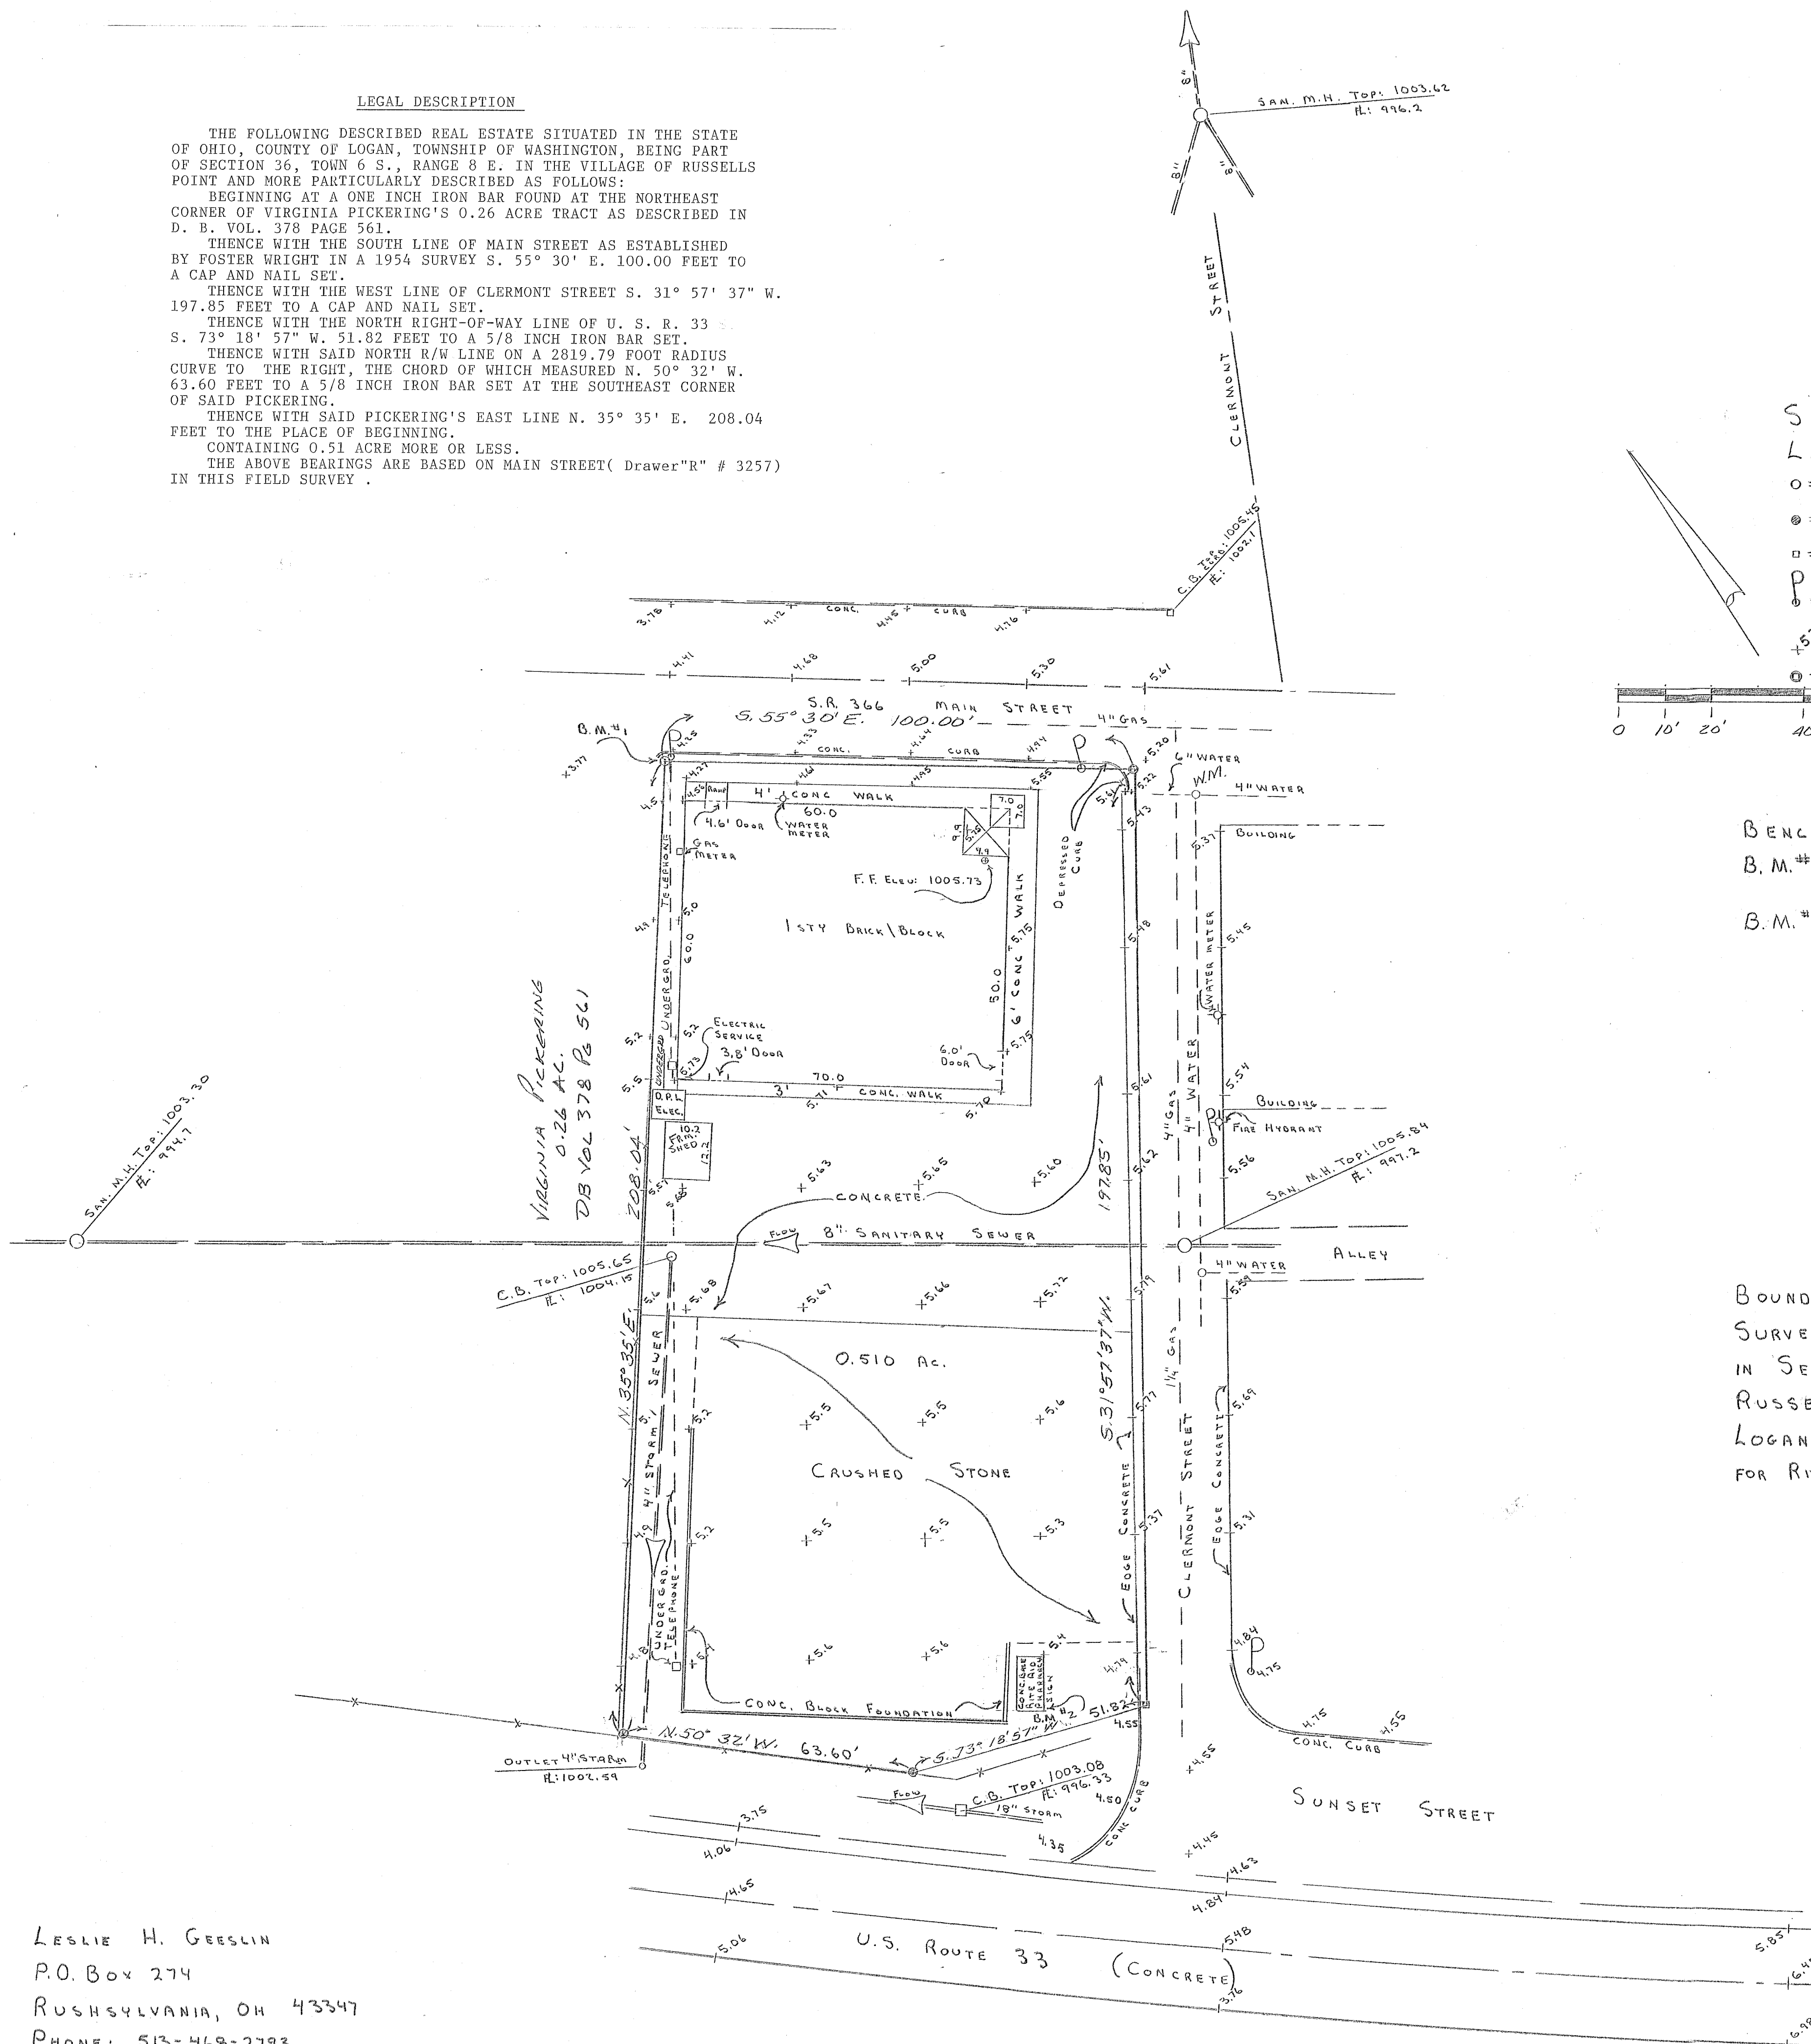 LEGAL DESCRIPTION
THE FOLLOWING DESCRIBED REAL ESTATE SITUATED IN THE STATE
OF OHIO, COUNTY OF LOGAN, TOWNSHIP OF WASHINGTON, BEING PART
OF SECTION 36, TOWN 6 S., RANGE 8 E. IN THE VILLAGE OF RUSSELLS
POINT AND MORE PARTICULARLY DESCRIBED AS FOLLOWS:
BEGINNING AT A ONE INCH IRON BAR FOUND AT THE NORTHEAST
CORNER OF VIRGINIA PICKERING'S 0.26 ACRE TRACT AS DESCRIBED IN
D. B. VOL. 378 PAGE 561.
THENCE WITH THE SOUTH LINE OF MAIN STREET AS ESTABLISHED
BY FOSTER WRIGHT IN A 1954 SURVEY S. 55° 30' E. 100.00 FEET TO
A CAP AND NAIL SET.
THENCE WITH THE WEST LINE OF CLERMONT STREET S. 31° 57' 37" W.
197.85 FEET TO A CAP AND NAIL SET.
THENCE WITH THE NORTH RIGHT-OF-WAY LINE OF U. S. R. 33
S. 73° 18' 57" W. 51.82 FEET TO A 5/8 INCH IRON BAR SET.
THENCE WITH SAID NORTH R/W LINE ON A 2819.79 FOOT RADIUS
CURVE TO THE RIGHT, THE CHORD OF WHICH MEASURED N. 50° 32' W.
63.60 FEET TO A 5/8 INCH IRON BAR SET AT THE SOUTHEAST CORNER
OF SAID PICKERING.
THENCE WITH SAID PICKERING'S EAST LINE N. 35° 35' E. 208.04
FEET TO THE PLACE OF BEGINNING.
CONTAINING 0.51 ACRE MORE OR LESS.
THE ABOVE BEARINGS ARE BASED ON MAIN STREET( Drawer"R" # 3257)
IN THIS FIELD SURVEY .
8"
SAN. M.H. TOP: 1003.62
FL: 996.2
8"
8"
CLERMONT STREET
C.B. TOP CURB: 1005.45
FL: 1002.1
S
L
0 10' 20' 40
3.78 4.12 CONC. 4.45 CURB 4.76
4.41 4.68 5.00 5.30 5.61
S.R. 366 MAIN STREET
S. 55° 30' E. 100.00'
4" GAS
B.M.#1
×3.77
4.25 4.33 CONC. 4.64 CURB 4.94
5.20
6" WATER
W.M.
4" WATER
4.27 4.61 4.95 5.55
5.61 5.22
5.43
4.5
4.56 RAMP 4' CONC WALK
60.0
7.0
7.0
4.6' DOOR
WATER METER
GAS METER
9.9
5.75
9.9
F.F. ELEV: 1005.73
DEPRESSED CURB
5.37
BUILDING
BENC
B.M.#
B.M.#
1 STY BRICK\BLOCK
UNDERGRD. TELEPHONE
4.9
5.0
60.0
5.75
50.0
6' CONC WALK
5.48
5.45
WATER METER
5.2
5.2
5.5
5.73
ELECTRIC SERVICE
3.8' DOOR
6.0' DOOR
5.75
70.0
3' 5.71 CONC. WALK 5.70
UNDERGRD
D.P.L ELEC.
5.61
5.54
4" GAS
4" WATER
BUILDING
FIRE HYDRANT
10.2
FRM. SHED
12.2
VIRGINIA PICKERING
0.26 AC.
DB VOL 378 PG 561
SAN. M.H. TOP: 1003.30
FL: 994.7
208.04'
5.57
5.68
5.63 5.65 5.60
CONCRETE
197.85'
5.62
5.56
SAN. M.H. TOP: 1005.84
FL: 997.2
FLOW
8" SANITARY SEWER
ALLEY
C.B. TOP: 1005.65
FL: 1004.15
4" WATER
5.6
5.68 5.67 5.66 5.72
5.79
5.59
N. 35° 35' E.
0.510 AC.
S. 31° 57' 37" W.
1¼" GAS
BOUND
SURVE
IN SE
RUSSE
LOGAN
FOR RI
5.1
5.2 5.5 5.5 5.6
5.77
5.69
4" STORM SEWER
CRUSHED STONE
EDGE CONCRETE
CLERMONT STREET
EDGE CONCRETE
4.9
5.2 5.5 5.5 5.3
5.37
5.31
UNDERGRD. TELEPHONE
4.8
5.6 5.6
5.4
4.84
4.75
4.79
CONC. BLOCK FOUNDATION
CONC. BASE
RITE AID
PHARMACY
SIGN
B.M #2
4.55
N. 50° 32' W. 63.60'
S. 73° 18' 57" W. 51.82'
OUTLET 4" STORM
FL: 1002.59
4.75 4.55
CONC. CURB
C.B. TOP: 1003.08
FL: 996.33
FLOW
18" STORM
4.50
CONC CURB
×4.55
SUNSET STREET
3.75
4.06
4.35
×4.45
4.63
4.65
4.84
5.06
U.S. ROUTE 33 (CONCRETE)
5.48
3.76
5.85
LESLIE H. GEESLIN
P.O. BOX 274
RUSHSYLVANIA, OH 43347
PHONE: 513-468-2793